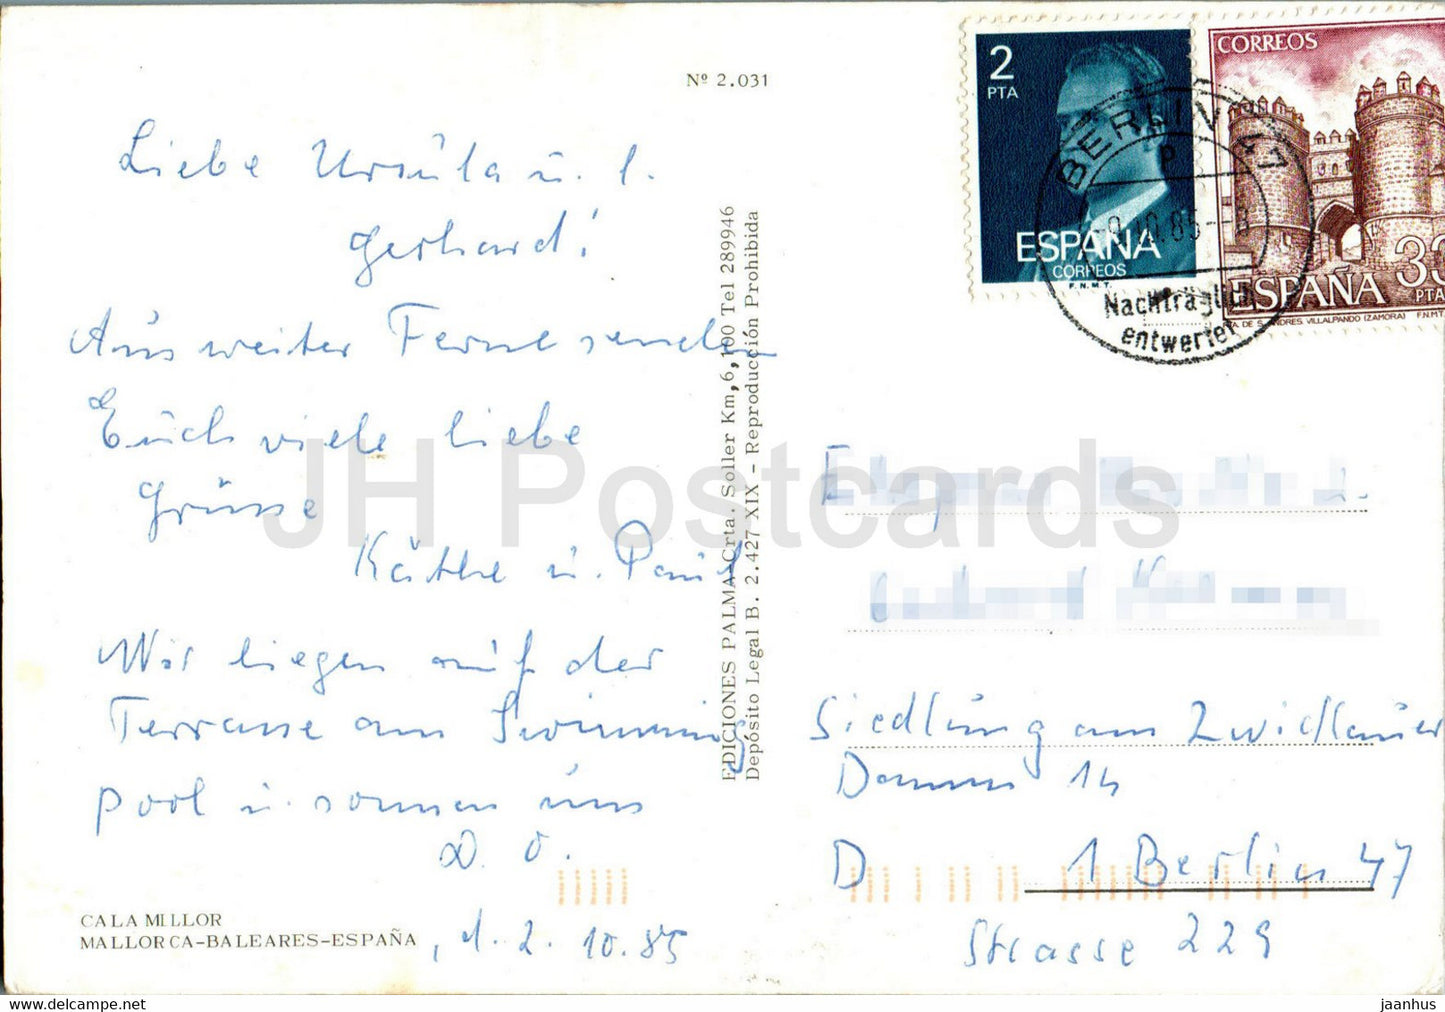 Nº 2.031
Liebe Ursula u. l.
Gerhard!
Aus weiter Ferne senden
Euch viele liebe
Grüsse
Käthe u. Paul
Wir liegen auf der
Terrasse am Swimming
pool u. sonnen uns
D. O.
CALA MILLOR
MALLORCA-BALEARES-ESPAÑA
, d. 2. 10.85
EDICIONES PALMA-Crta. Soller Km, 6,100 Tel 289946
Depósito Legal B. 2.427 XIX - Reproducción Prohibida
2
PTA
ESPAÑA
CORREOS
F.N.M.T.
CORREOS
ESPAÑA
PTA
DE S. ANDRES. VILLALPANDO (ZAMORA) F.N.M.T
BERLIN 47
P
10.85
Nachträglich
entwertet
Siedlung am Zwicklauer
Damm 14
D 1 Berlin 47
Strasse 229
JH Postcards
jaanhus